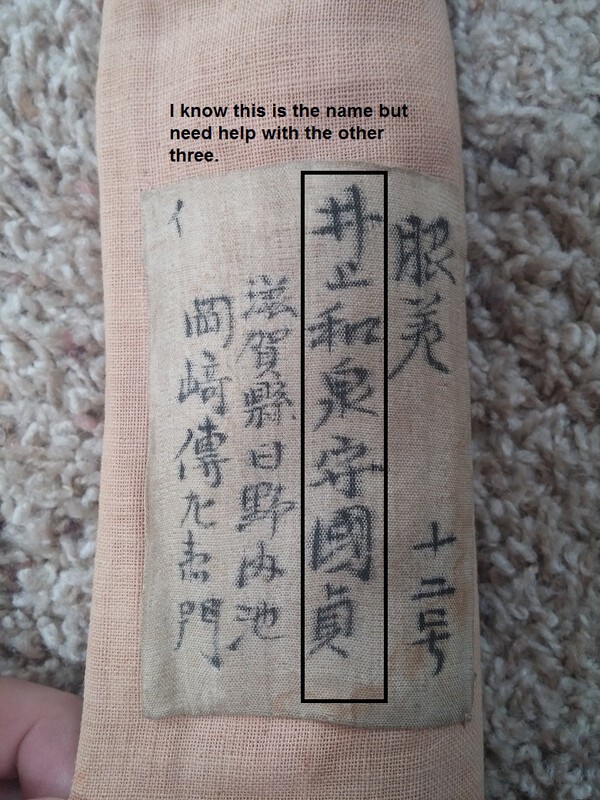 I know this is the name but
need help with the other
three.
十二号
井上和泉守國貞
滋賀縣日野内池
岡﨑傳 門
イ